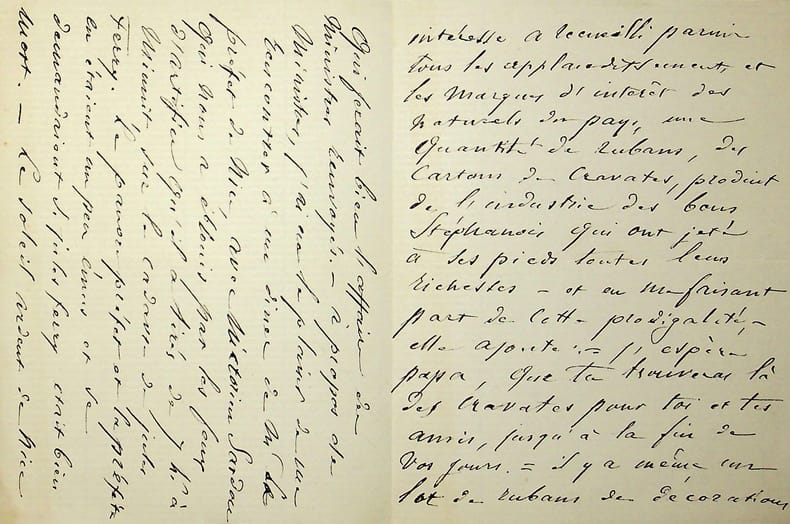 intéresse a recueilli parmi
tous les applaudissements et
les marques d'intérêt des
naturels du pays, une
quantité de rubans, des
Cartons de Cravates, produit
de l'industrie des bons
Stéphanois qui ont jeté
à ses pieds toutes leurs
richesses – et en me faisant
part de cette prodigalité, –
elle ajoute : = j'espère
papa, que tu trouveras là
des Cravates pour toi et tes
amis, jusqu'à la fin de
vos jours. = il y a même un
lot de rubans de décorations
Qui ferait bien l'affaire de
Ministres renvoyés. – à propos de
Ministres, j'ai eu le plaisir de me
rencontrer à un diner
préfet de Nice, avec Victorien Sardou
Qui nous a éblouis par les feux
d'artifice qu'il a tirés de 7 h. à
Minuit sur le cadavre de jules
Ferry. Le pauvre préfet et la préfète
en étaient un peu émus et se
demandaient si jules ferry était bien
mort. – Le soleil ardent de Nice